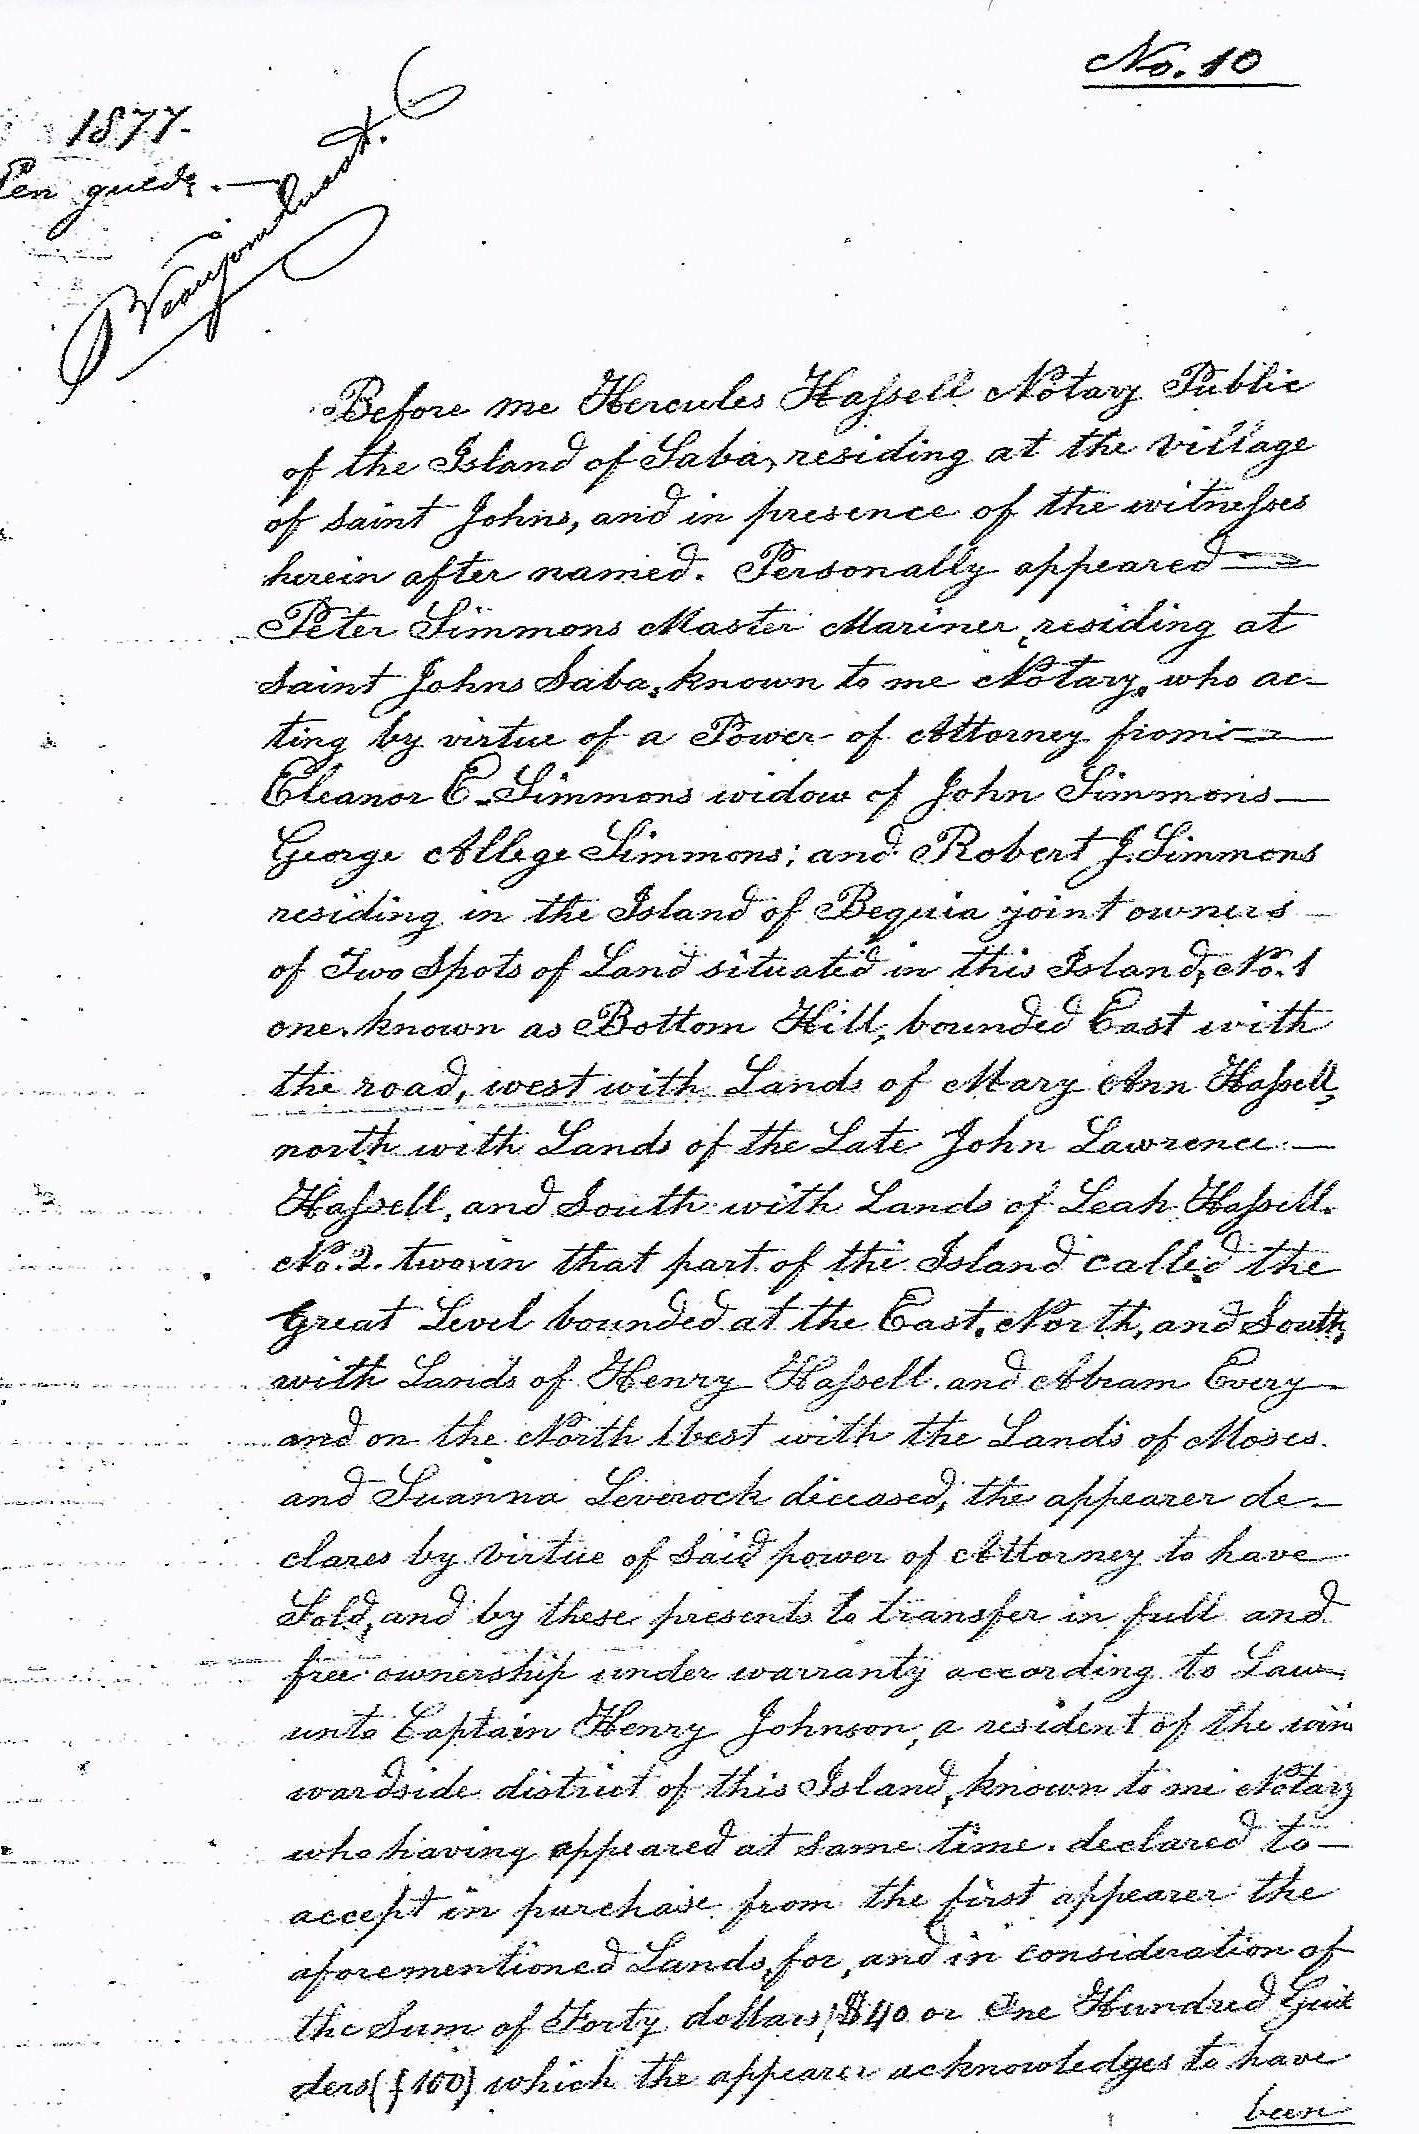 No. 10
1877.
Before me Hercules Hassell Notary Public
of the Island of Saba, residing at the village
of saint Johns, and in presence of the witnesses
herein after named. Personally appeared
Peter Simmons Master Mariner, residing at
saint Johns Saba, known to me Notary, who ac-
ting by virtue of a Power of Attorney from
Eleanor E. Simmons widow of John Simmons—
George Allege Simmons; and Robert J. Simmons
residing in the Island of Bequia joint owners
of Two Spots of Land situated in this Island, No. 1
one known as Bottom Hill, bounded East with
the road, west with Lands of Mary Ann Hassell,
north with Lands of the Late John Lawrence—
Hassell, and South with Lands of Leah Hassell.
No. 2. two in that part of the Island called the
Great Level bounded at the East, North, and South,
with Lands of Henry Hassell and Abram Every
and on the North West with the Lands of Moses
and Suanna Leverock deceased, the appearer de-
clares by virtue of said power of Attorney to have
Sold, and by these presents to transfer in full and
free ownership under warranty according to Law
unto Captain Henry Johnson, a resident of the win
wardside district of this Island, known to me Notary
who having appeared at same time declared to—
accept in purchase from the first appearer the
aforementioned Lands, for, and in consideration of
the Sum of Forty dollars, $40 or One Hundred Guil
ders (f 100) which the appearer acknowledges to have
been